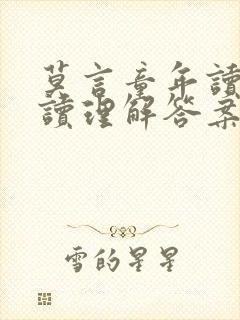 莫言童年讀
讀理解答案
雪的星星